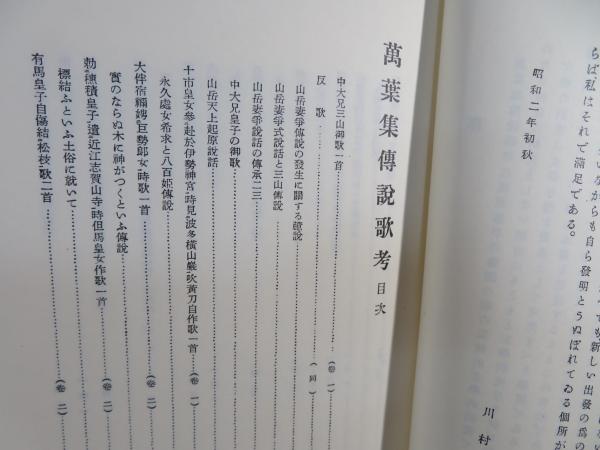 の爲の發出いし新もて
らば私はいながらも自ら發明とうぬぼれてゐる個所が
らば私はそれで滿足である。
昭和二年初秋
川村
萬葉集傳說歌考 目次
中大兄三山御歌一首……(卷 一)
反歌……(同)
山岳妻爭傳說の發生に關する臆說
山岳妻爭式說話と三山傳說
山岳妻爭說話の傳承二三
中大兄皇子の御歌
山岳天上起原說話
十市皇女參赴於伊勢神宮時見波多橫山巖吹黃刀自作歌一首……(卷 一)
永久處女希求と八百姬傳說
大伴宿禰娉巨勢郎女時歌一首……(卷 二)
實のならぬ木に神がつくといふ傳說
勅穗積皇子遣近江志賀山寺時但馬皇女作歌一首……(卷 二)
標結ふといふ土俗に就いて
有馬皇子自傷結松枝歌二首……(卷 二)